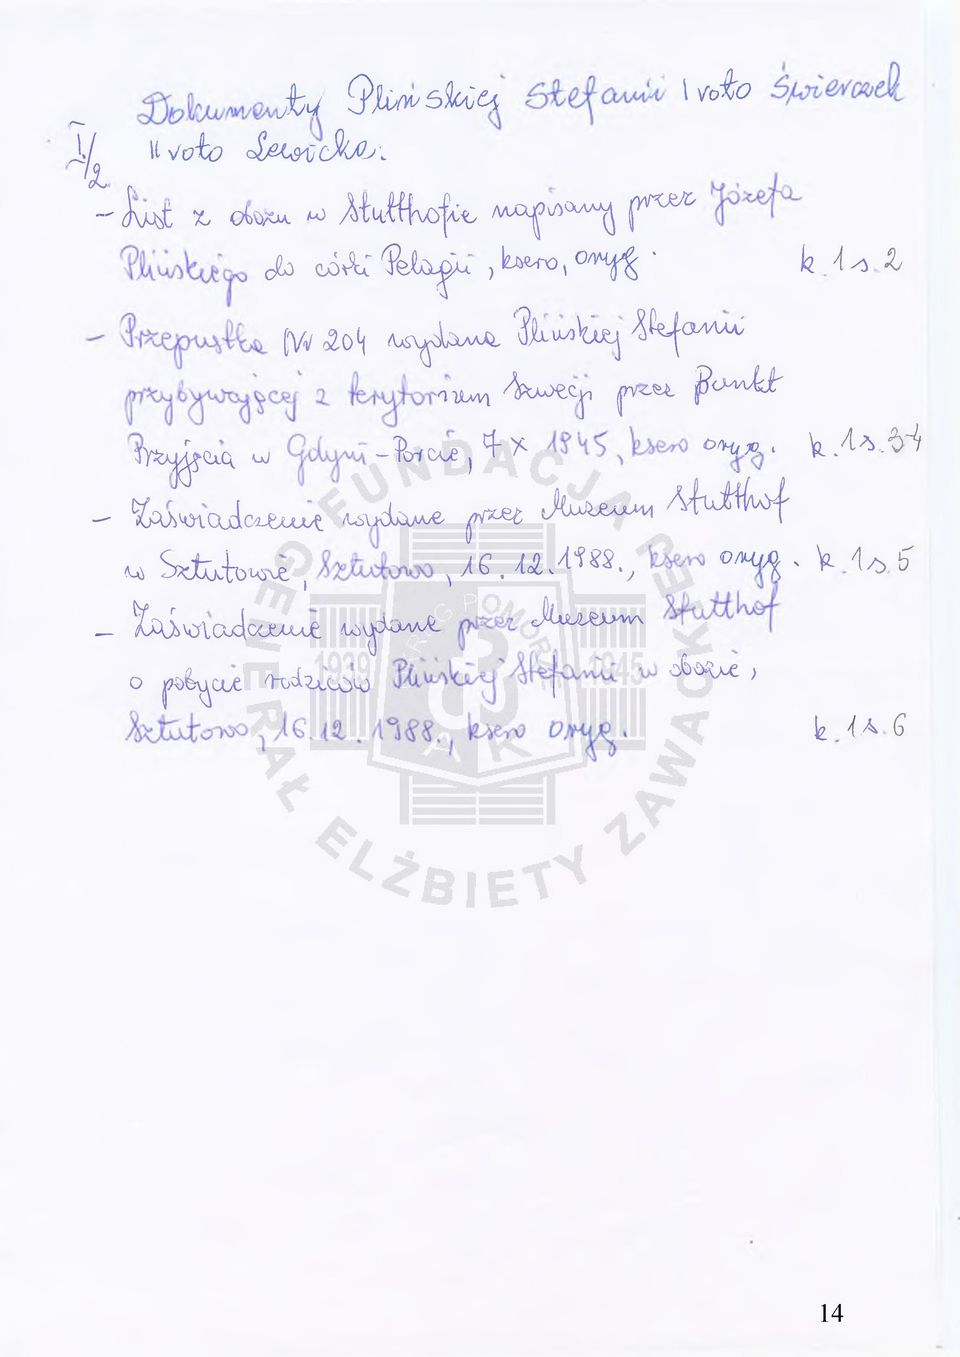 Dokumenty Plińskiej Stefanii I voto Świerczek
I/2. II voto Lewicka.
- List z obozu w Stutthofie napisany przez Józefa
Plińskiego do córki Pelagii, ksero, oryg. k. 1 s. 2
- Przepustka Nr 204 wydana Plińskiej Stefanii
przybywającej z terytorium Szwecji przez Punkt
Przyjęcia w Gdyni-Porcie, 7 X 1945, ksero oryg. k. 1 s. 3-4
- Zaświadczenie wydane przez Muzeum Stutthof
w Sztutowie, Sztutowo, 16.12.1988., ksero oryg. k. 1 s. 5
- Zaświadczenie wydane przez Muzeum Stutthof
o pobycie rodziców Plińskiej Stefanii w obozie,
Sztutowo, 16.12.1988., ksero oryg. k. 1 s. 6
FUNDACJA GENERAŁ ELŻBIETY ZAWACKIEJ
OKRĘG POMORZE
1939 1945
AK
14